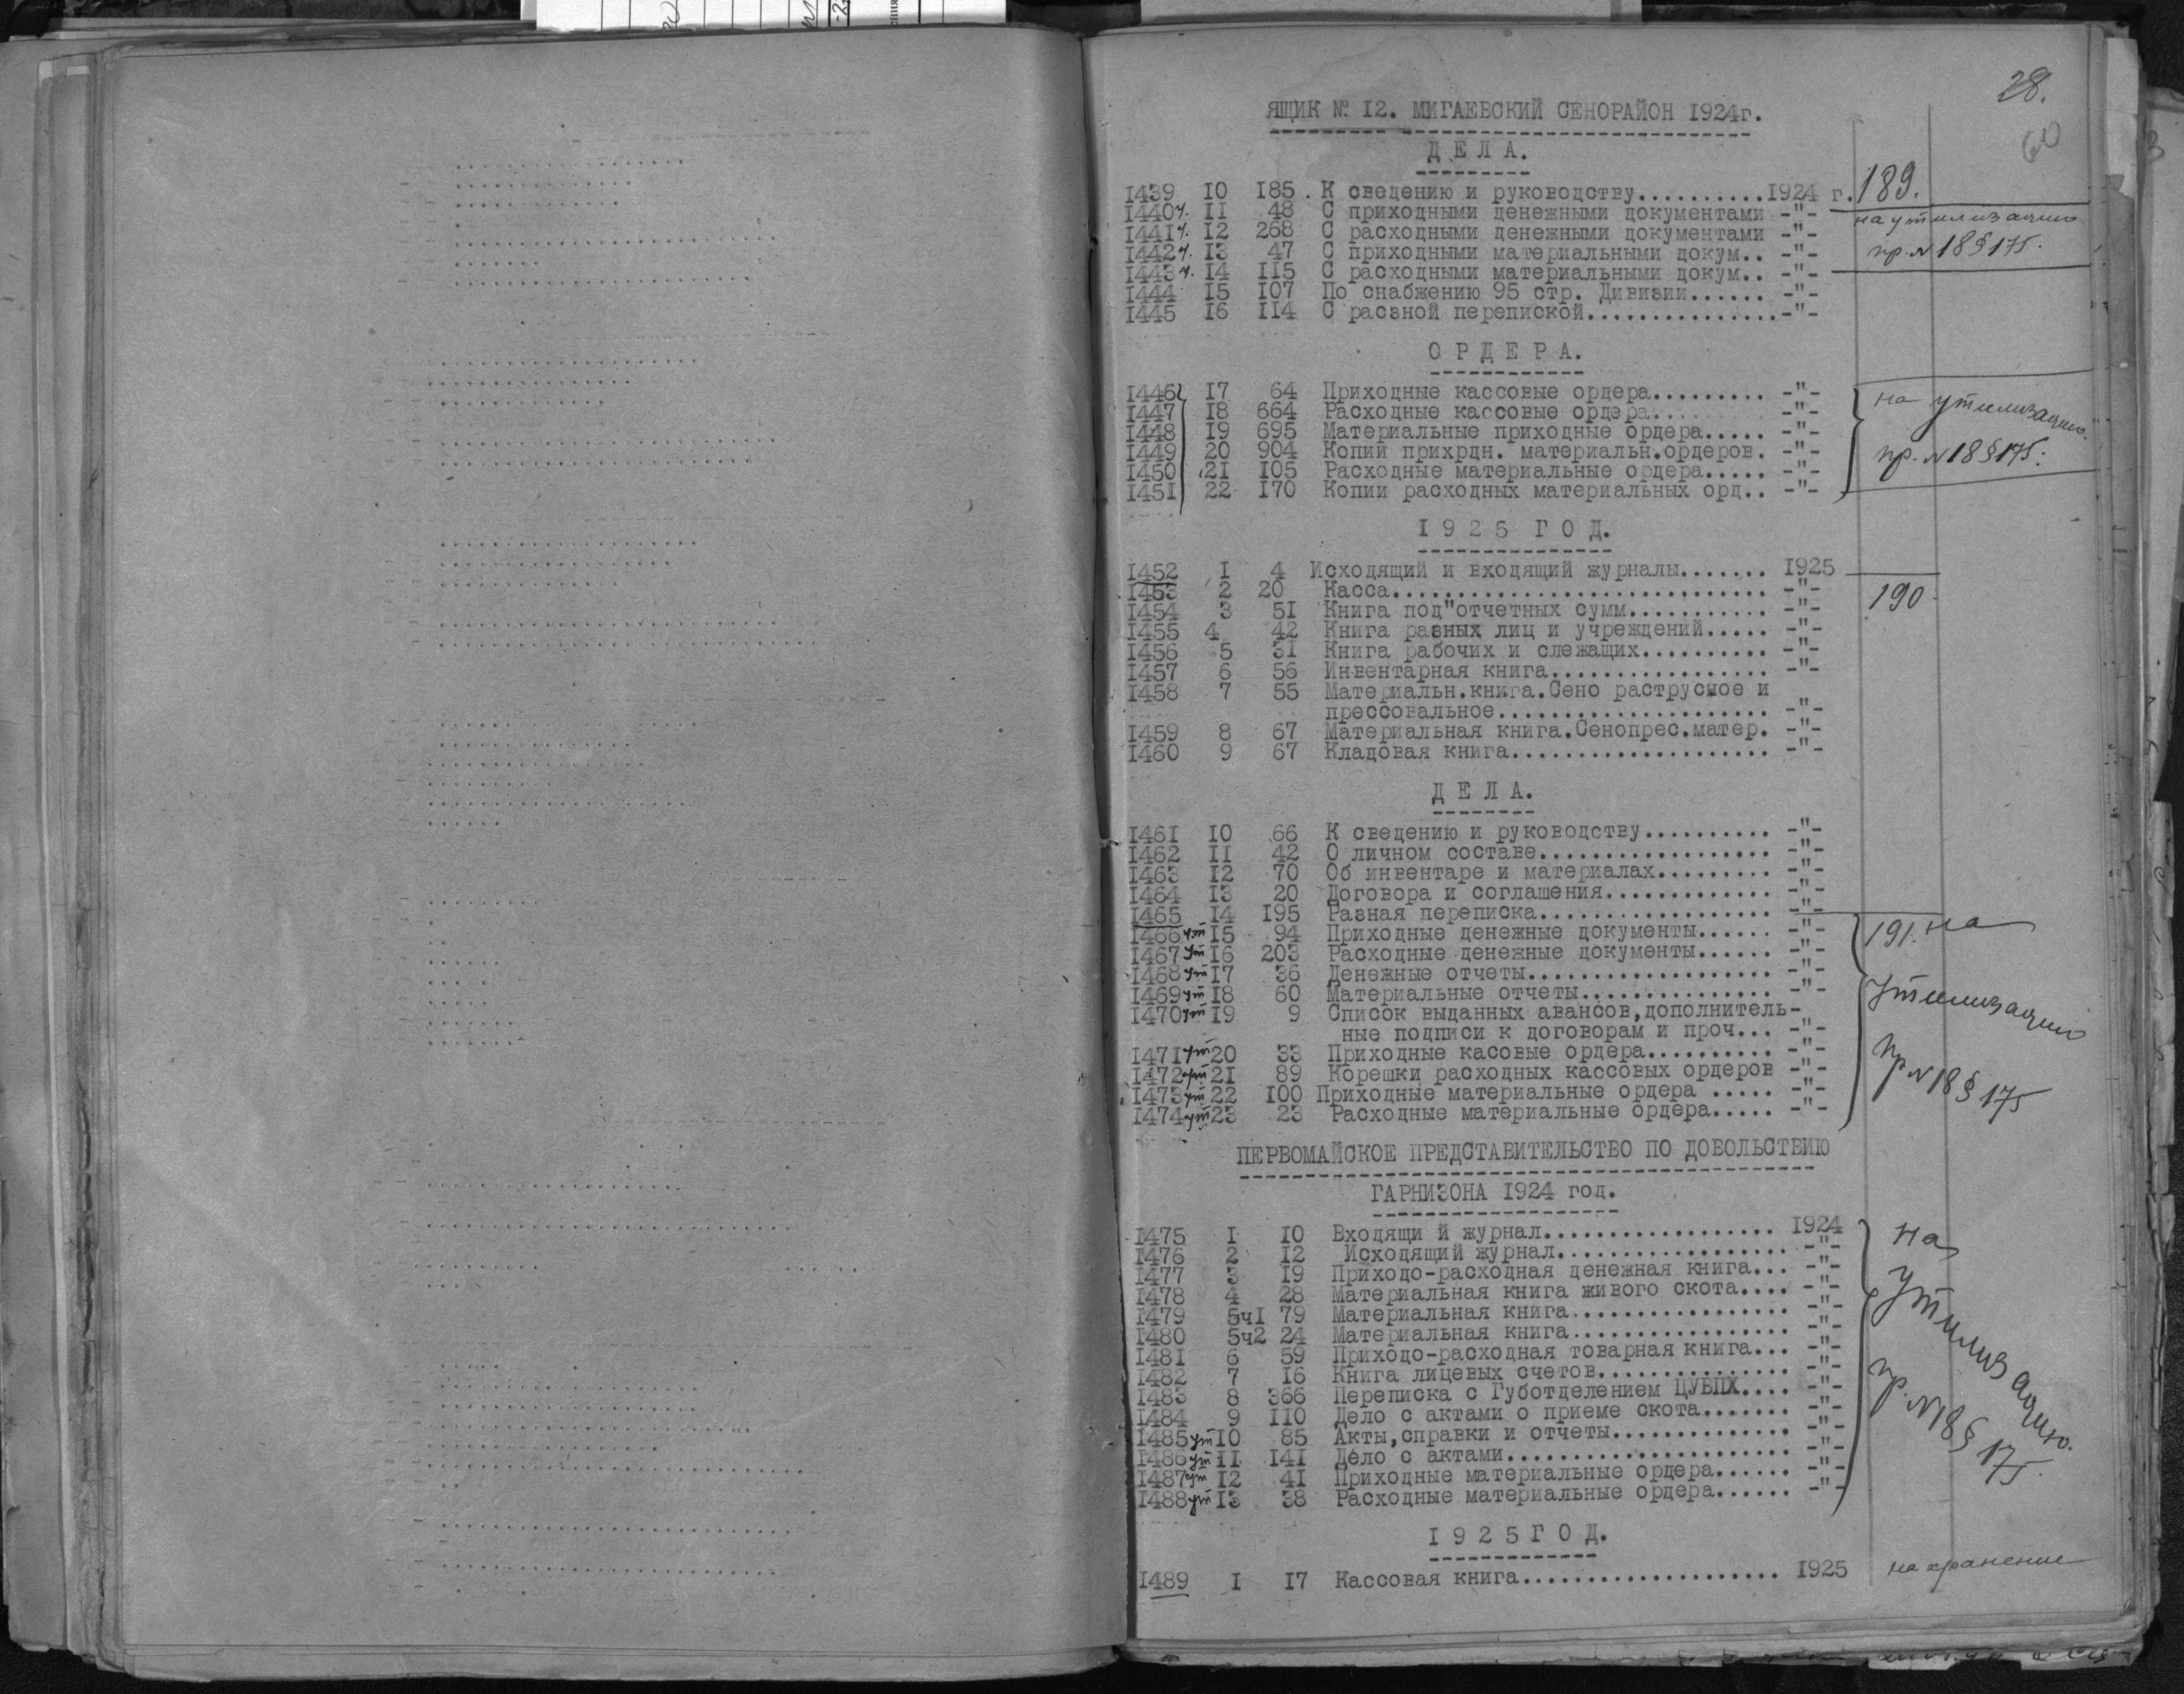 28.
60
ЯЩИК № I2. МИГАЕВСКИЙ СЕНОРАЙОН I924г.
Д Е Л А.
I439 I0 I85 . К сведению и руководству...........I924 г. 189.
I440 у. II 48 С приходными денежными документами -"- на утилизацию
I441 у. I2 268 С расходными денежными документами -"-
I442 у. I3 47 С приходными материальными докум.. -"- пр. N 18 § 175.
I443 у. I4 II5 С расходными материальными докум.. -"-
I444 I5 I07 По снабжению 95 стр. Дивизии...... -"-
I445 I6 II4 С расзной перепиской...............-"-
О Р Д Е Р А.
I446 I7 64 Приходные кассовые ордера......... -"- на утилизацию.
I447 I8 664 Расходные кассовые ордера......... -"-
I448 I9 695 Материальные приходные ордера..... -"-
I449 20 904 Копии прихрдн. материальн.ордеров. -"- пр. N 18 § 175.
I450 21 I05 Расходные материальные ордера..... -"-
I45I 22 I70 Копии расходных материальных орд.. -"-
I 9 2 5 Г О Д.
I452 I 4 Исходящий и входящий журналы....... I925
I453 2 20 Касса............................. -"- 190
I454 3 5I Книга под"отчетных сумм........... -"-
I455 4 42 Книга разных лиц и учреждений..... -"-
I456 5 3I Книга рабочих и слежащих.......... -"-
I457 6 56 Инвентарная книга................. -"-
I458 7 55 Материальн.книга.Сено раструсное и
прессовальное..................... -"-
I459 8 67 Материальная книга.Сенопрес.матер. -"-
I460 9 67 Кладовая книга.................... -"-
Д Е Л А.
I46I I0 66 К сведению и руководству.......... -"-
I462 II 42 О личном составе.................. -"-
I463 I2 70 Об инвентаре и материалах......... -"-
I464 I3 20 Договора и соглашения............. -"-
I465 I4 I95 Разная переписка.................. -"-
I466 ут I5 94 Приходные денежные документы...... -"- 191. на
I467 ут I6 203 Расходные денежные документы...... -"-
I468 ут I7 36 Денежные отчеты................... -"-
I469 ут I8 60 Материальные отчеты............... -"- утилизацию
I470 ут I9 9 Список выданных авансов,дополнитель-
ные подписи к договорам и проч... -"-
I47I ут 20 33 Приходные касовые ордера.......... -"- пр N 18 § 175
I472 ут 2I 89 Корешки расходных кассовых ордеров -"-
I473 ут 22 I00 Приходные материальные ордера ..... -"-
I474 ут 23 23 Расходные материальные ордера..... -"-
ПЕРВОМАЙСКОЕ ПРЕДСТАВИТЕЛЬСТВО ПО ДОВОЛЬСТВИЮ
ГАРНИЗОНА I924 год.
I475 I I0 Входящи й журнал.................. I924 на
I476 2 I2 Исходящий журнал.................. -"-
I477 3 I9 Приходо-расходная денежная книга... -"- утилизацию.
I478 4 28 Материальная книга живого скота.... -"-
I479 5ч1 79 Материальная книга................. -"-
I480 5ч2 24 Материальная книга................. -"-
I48I 6 59 Приходо-расходная товарная книга... -"-
I482 7 I6 Книга лицевых счетов............... -"- пр. N 18 § 175.
I483 8 366 Переписка с Губотделением ЦУВПХ.... -"-
I484 9 II0 Дело с актами о приеме скота....... -"-
I485 ут I0 85 Акты,справки и отчеты.............. -"-
I486 ут II I4I Дело с актами...................... -"-
I487 ут I2 4I Приходные материальные ордера...... -"-
I488 ут I3 38 Расходные материальные ордера...... -"-
I 9 2 5 Г О Д.
I489 I I7 Кассовая книга.................... I925 на хранение